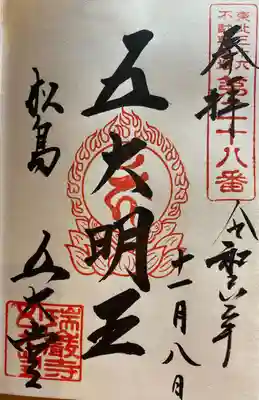 奉拝
東北三十六
不動尊霊場
第二十八番
令和六年
十一月八日
五大明王
松島
五大堂
瑞巌寺